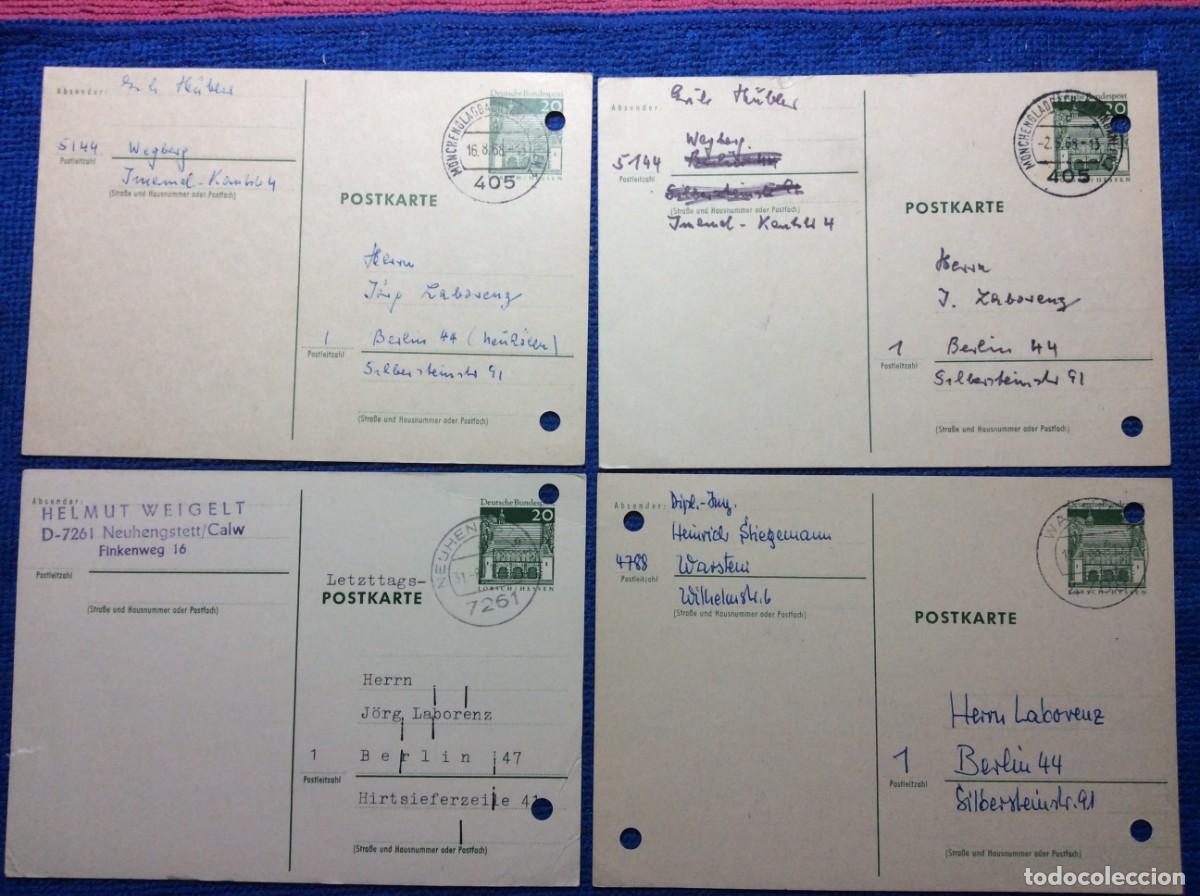 Absender: Erich Hübler
Deutsche Bundespost
20
MÖNCHENGLADBACH
16.8.68-13
405
5144 Wegberg
Postleitzahl
Immanuel-Kantstr 4
(Straße und Hausnummer oder Postfach)
POSTKARTE
Herrn
Jörg Laborenz
1 Berlin 44 (Neukölln)
Postleitzahl
Silbersteinstr 91
(Straße und Hausnummer oder Postfach)
Absender: Hübler
Bundespost
20
MÖNCHENGLADBACH
-2.9.68-13
405
HESSEN
Wegberg
5144 Berlin 44
Postleitzahl
Silbersteinstr 91
(Straße und Hausnummer oder Postfach)
Kantstr 4
POSTKARTE
Herrn
J. Laborenz
1 Berlin 44
Postleitzahl
Silbersteinstr 91
(Straße und Hausnummer oder Postfach)
Absender:
HELMUT WEIGELT
D-7261 Neuhengstett/Calw
Finkenweg 16
Postleitzahl
(Straße und Hausnummer oder Postfach)
Deutsche Bundespost
20
LORSCH/HESSEN
NEUHEN
31.
7261
Letzttags-
POSTKARTE
Herrn
Jörg Laborenz
1 Berlin 47
Postleitzahl
Hirtsieferzeile 41
(Straße und Hausnummer oder Postfach)
Absender: Dipl.-Ing.
Heinrich Stiegemann
4788 Warstein
Postleitzahl
Wilhelmstr. 6
(Straße und Hausnummer oder Postfach)
WA
POSTKARTE
Herrn Laborenz
1 Berlin 44
Postleitzahl
Silbersteinstr. 91
(Straße und Hausnummer oder Postfach)
todocoleccion